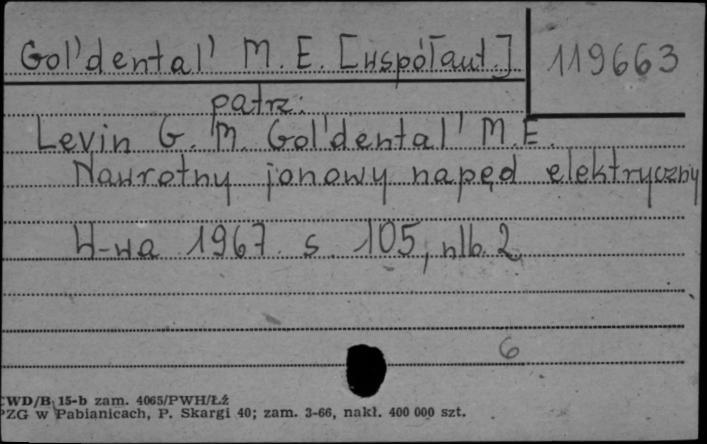 Gol'dental' M. E. [współaut.] 119663
patrz:
Levin G. M. Gol'dental' M.E.
Nawrotny jonowy napęd elektryczny
W-wa 1967 s. 105, nlb. 2
6
CWD/B 15-b zam. 4065/PWH/Łź
PZG w Pabianicach, P. Skargi 40; zam. 3-66, nakł. 400 000 szt.